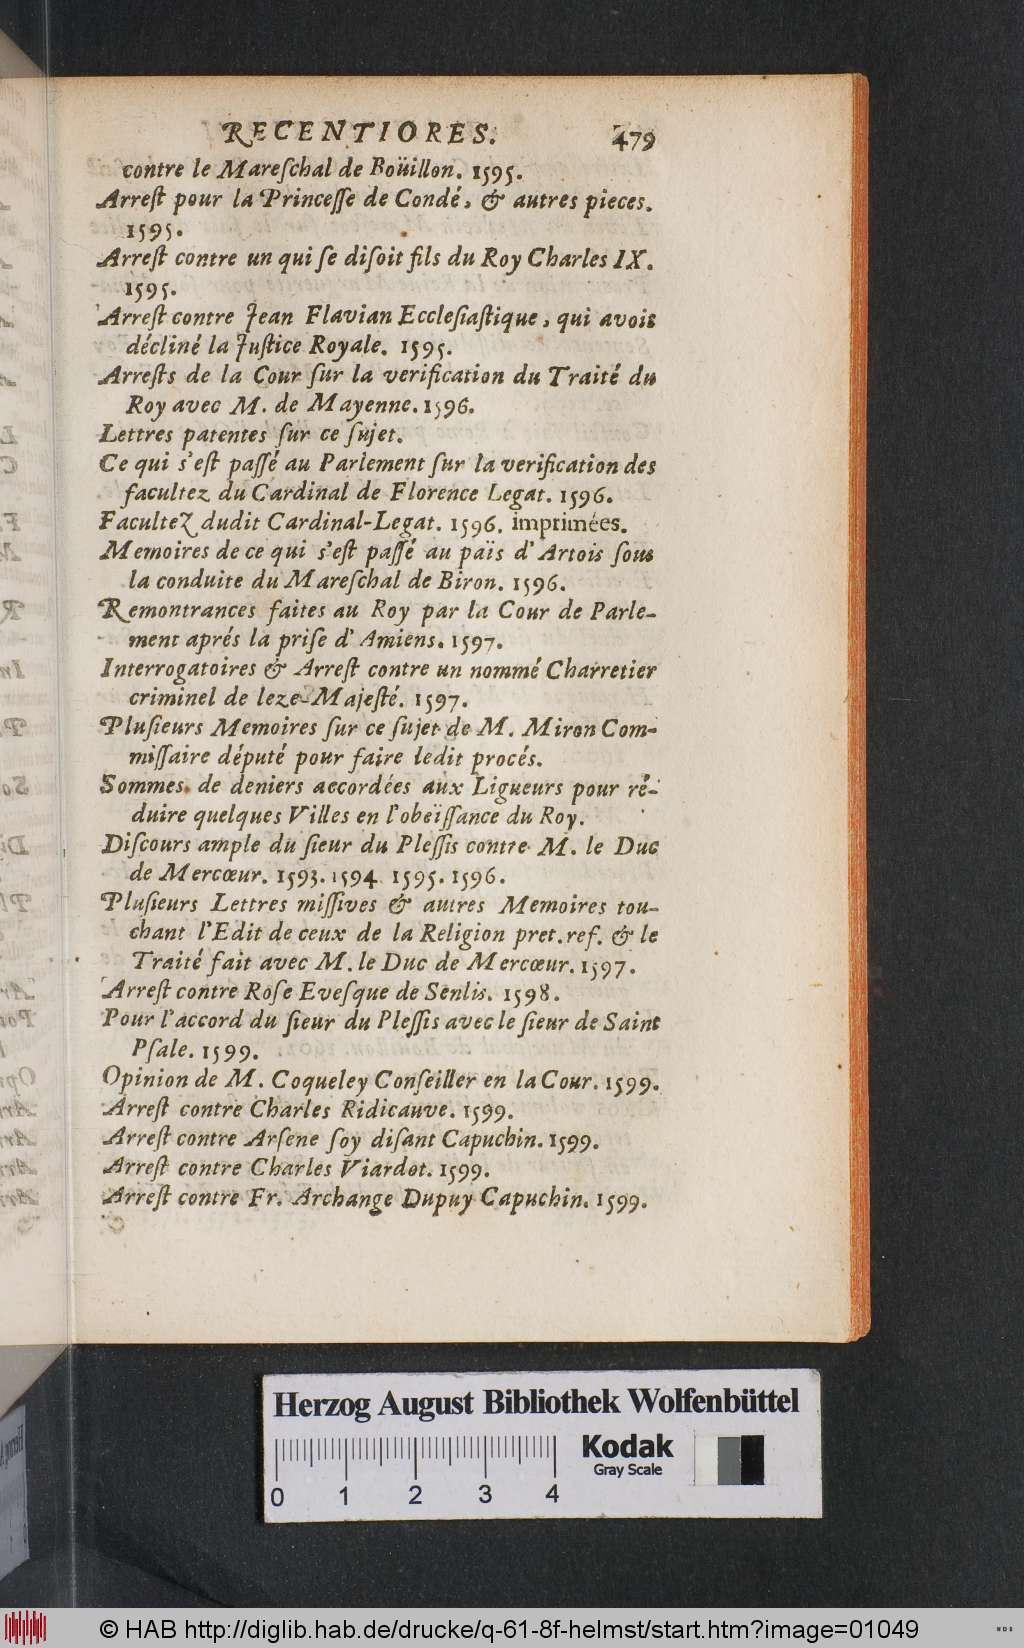 RECENTIORES. 479
contre le Mareſchal de Boüillon. 1595.
Arreſt pour la Princeſſe de Condé, & autres pieces.
1595.
Arreſt contre un qui ſe diſoit fils du Roy Charles IX.
1595.
Arreſt contre Jean Flavian Eccleſiaſtique, qui avois
décliné la Juſtice Royale. 1595.
Arreſts de la Cour ſur la verification du Traité du
Roy avec M. de Mayenne. 1596.
Lettres patentes ſur ce ſujet.
Ce qui s'eſt paſſé au Parlement ſur la verification des
facultez du Cardinal de Florence Legat. 1596.
Facultez dudit Cardinal-Legat. 1596. imprimées.
Memoires de ce qui s'eſt paſſé au païs d'Artois ſous
la conduite du Mareſchal de Biron. 1596.
Remontrances faites au Roy par la Cour de Parle-
ment aprés la priſe d'Amiens. 1597.
Interrogatoires & Arreſt contre un nommé Charretier
criminel de leze-Majeſté. 1597.
Pluſieurs Memoires ſur ce ſujet de M. Miron Com-
miſſaire député pour faire ledit procés.
Sommes de deniers accordées aux Ligueurs pour ré-
duire quelques Villes en l'obeïſſance du Roy.
Diſcours ample du ſieur du Pleſſis contre M. le Duc
de Mercœur. 1593. 1594. 1595. 1596.
Pluſieurs Lettres miſſives & autres Memoires tou-
chant l'Edit de ceux de la Religion pret. ref. & le
Traité fait avec M. le Duc de Mercœur. 1597.
Arreſt contre Roſe Eveſque de Senlis. 1598.
Pour l'accord du ſieur du Pleſſis avec le ſieur de Saint
Pſale. 1599.
Opinion de M. Coqueley Conſeiller en la Cour. 1599.
Arreſt contre Charles Ridicauve. 1599.
Arreſt contre Arſene ſoy diſant Capuchin. 1599.
Arreſt contre Charles Viardot. 1599.
Arreſt contre Fr. Archange Dupuy Capuchin. 1599.
Herzog August Bibliothek Wolfenbüttel
Kodak
Gray Scale
0 1 2 3 4
© HAB http://diglib.hab.de/drucke/q-61-8f-helmst/start.htm?image=01049